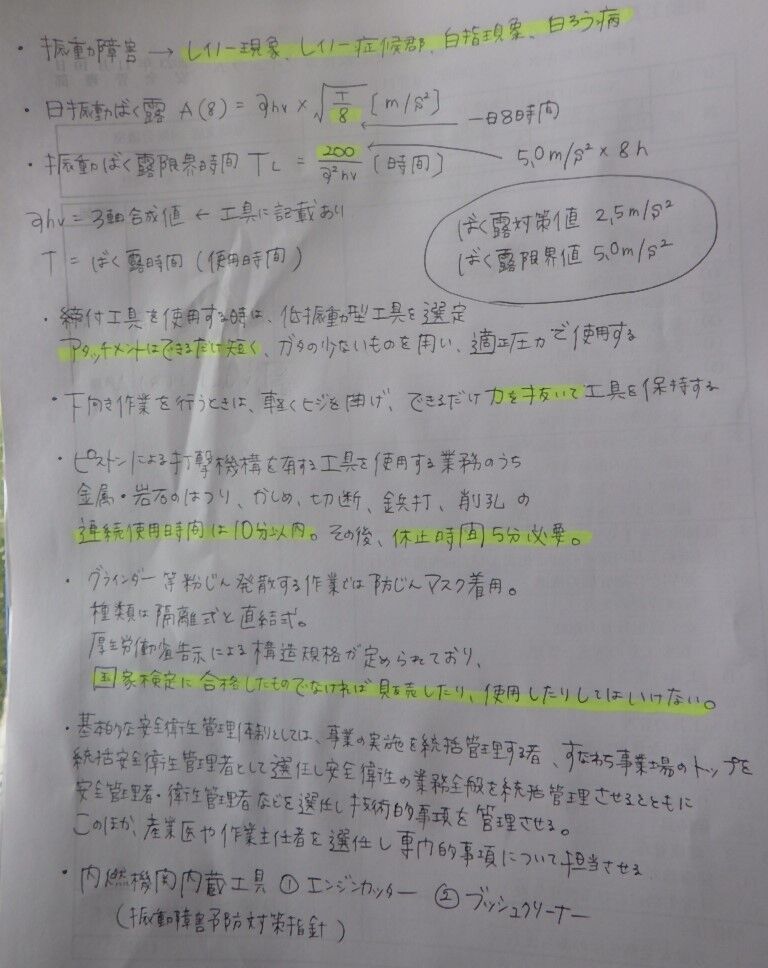 ・振動障害 → レイノー現象、レイノー症候郡、白指現象、白ろう病
・日振動ばく露 A(8) = ahv × √T/8 [m/s²]
一日8時間
・振動ばく露限界時間 TL = 200/a²hv (時間)
5,0m/s² × 8h
ahv = 3軸合成値 ← 工具に記載あり
T = ばく露時間 (使用時間)
ばく露対策値 2,5m/s²
ばく露限界値 5,0m/s²
・締付工具を使用する時は、低振動型工具を選定
アタッチメントはできるだけ短く、ガタの少ないものを用い、適正圧力で使用する
・下向き作業を行うときは、軽くヒジを曲げ、できるだけ力を抜いて工具を保持する
・ピストンによる打撃機構を有する工具を使用する業務のうち
金属・岩石のはつり、かしめ、切断、鋲打、削孔の
連続使用時間は10分以内。その後、休止時間5分必要。
・グラインダー等粉じん発散する作業では防じんマスク着用。
種類は隔離式と直結式。
厚生労働省告示による構造規格が定められており、
国家検定に合格したものでなければ販売したり、使用したりしてはいけない。
・基本的な安全衛生管理体制としては、事業の実施を統括管理する者、すなわち事業場のトップを
統括安全衛生管理者として選任し安全衛生の業務全般を統括管理させるとともに
安全管理者・衛生管理者などを選任し技術的事項を管理させる。
このほか、産業医や作業主任者を選任し専門的事項について担当させる
・内燃機関内蔵工具 ① エンジンカッター ② ブッシュクリーナー
(振動障害予防対策指針)